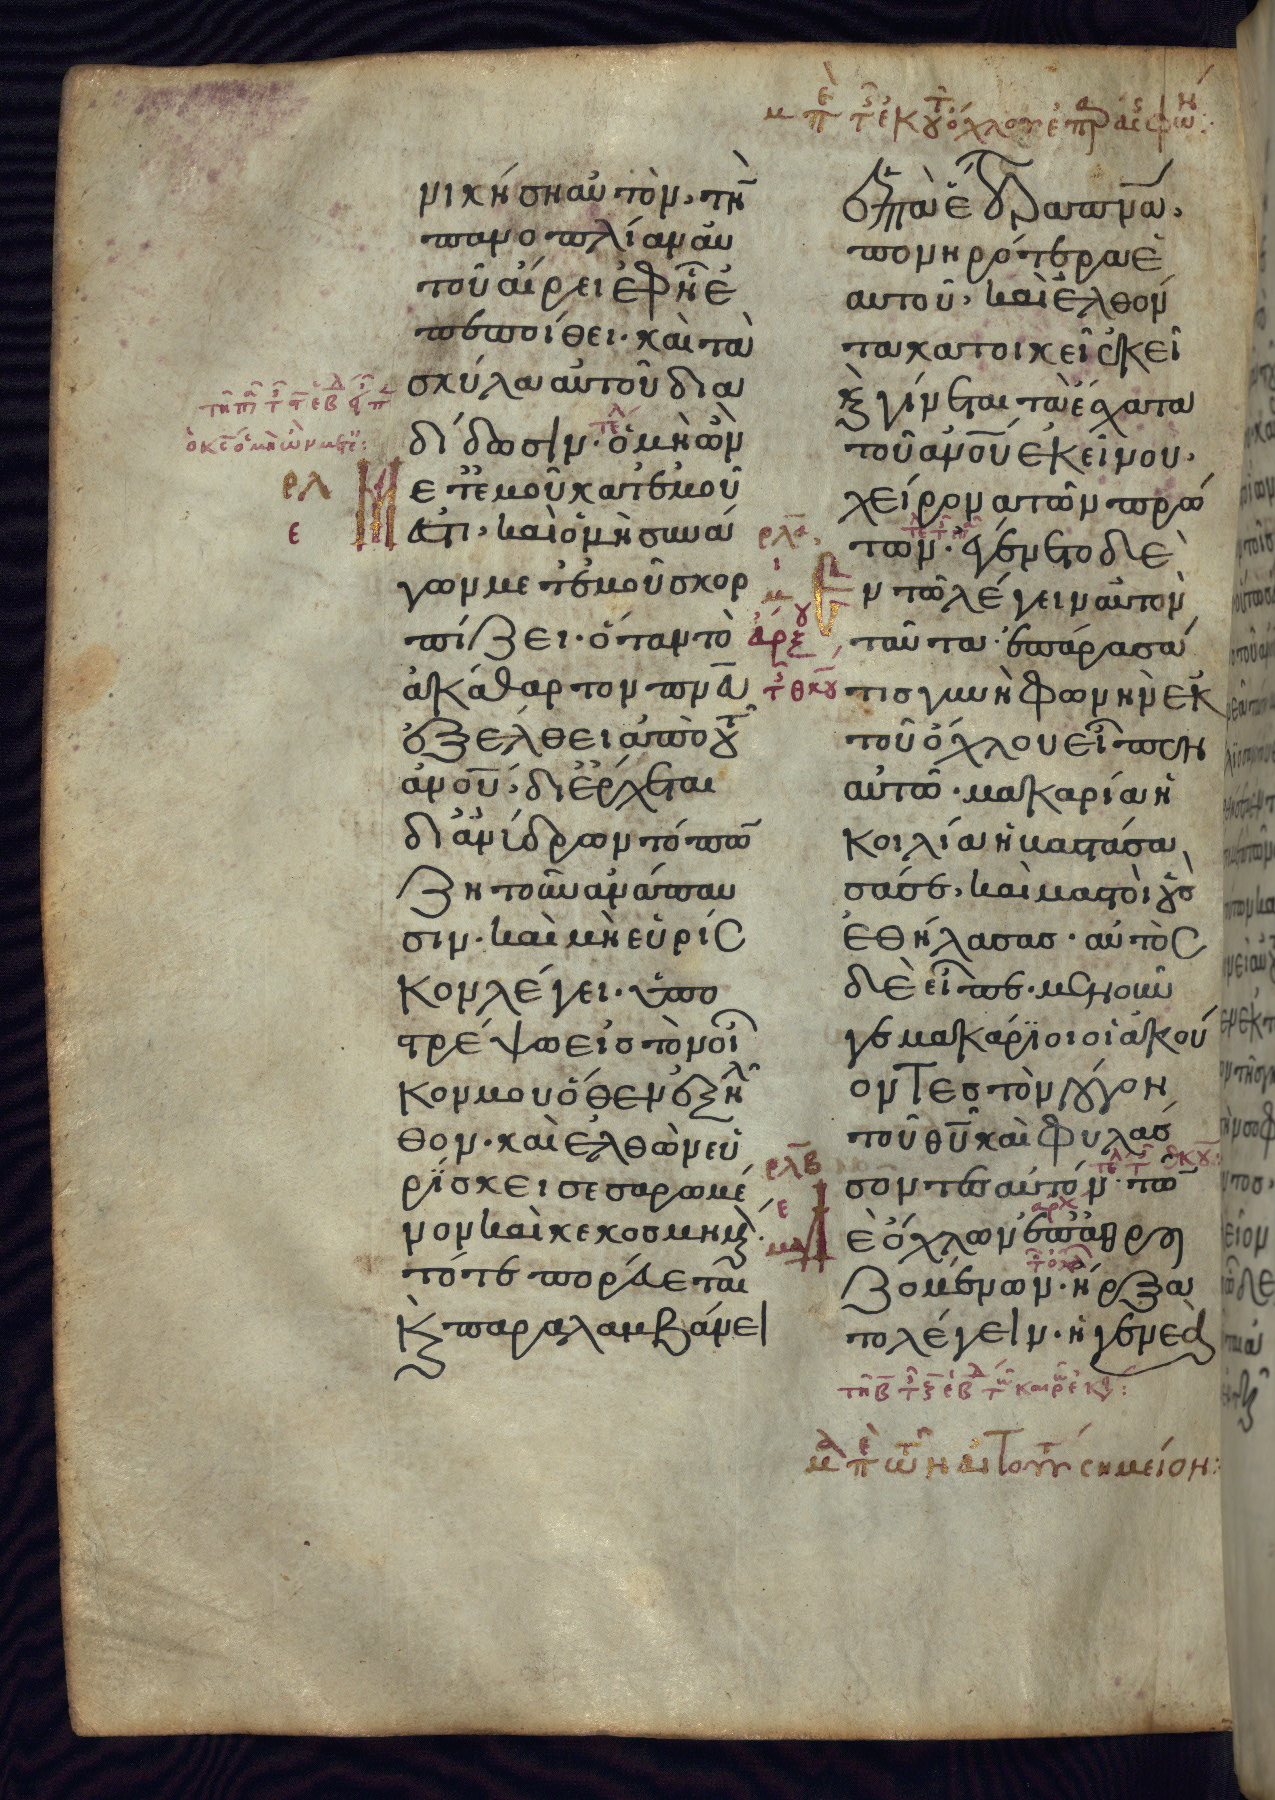 νικήση αὐτὸν, τὴν
πανοπλίαν αὐ
τοῦ αἴρει ἐφ ἧ ἐ
πεποίθει· καὶ τὰ
σκύλα αὐτοῦ δια
δίδωσιν· ὁ μὴ ὢν
Μετ ἐμοῦ κατ ἐμοῦ
ἐστι, καὶ ὁ μὴ συνά
γων μετ ἐμοῦ σκορ
πίζει· ὅταν τὸ
ἀκάθαρτον πνᾱ
ἐξέλθει ἀπὸ τοῦ
ἀνοῡ, διέρχεται
δι ἀνίδρων τόπω̄
ζητοῦν ἀνάπαυ
σιν· καὶ μὴ εὑρίσ
κον λέγει· ὑπο
στρέψω εἰς τὸν οἶ
κον μου ὅθεν ἐξῆλ
θον· καὶ ἐλθὼν εὑ
ρΐσκει σεσαρωμέ
νον καὶ κεκοσμημ
τότε πορεύεται
καὶ παραλαμβάνει
ρλ
ε
ἑπτὰ ἕτερα πνᾱ,
πονηρότερα ἑ
αυτοῦ, καὶ ἐλθόν
τα κατοικεῖ ἐκεῖ
καὶ γίνεται τὰ ἔσχατα
τοῦ ἀνοῡ ἐκείνου,
χείρονα τῶν πρώ
των· ἐγένετο δὲ
Ἐν τῶ λέγειν αὐτὸν
ταῦτα· ἐπάρασά
τις γυνὴ φωνὴν ἐκ
τοῦ ὄχλου εἶπεν
αὐτῶ· μακαρία ἡ
κοιλία ἡ βαστάσα
σά σε, καὶ μαστοὶ οὓς
ἐθήλασας· αὐτὸς
δὲ εἶπε· μενοῦν
γε μακάρϊοι οἱ ἀκού
οντες τὸν λόγον
τοῦ θῡ καὶ φυλάσ
σοντες αὐτόν· τῶ̄
Δὲ ὄχλων ἐπαθροι
ζομένων· ἤρξα
το λέγειν· ἡ γενεὰ
ρλα
ρλβ
ε